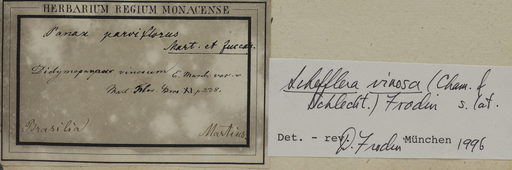 HERBARIUM REGIUM MONACENSE
Panax parviflorus
Mart. et fuscus.
Didymopanax vinosum E. March. var. v
Mart. Flor. Bras XI p 238.
Brasilia Martius
Schefflera vinosa (Cham. &
Schlecht.) Frodin s. lat.
Det. - rev. D. Frodin München 1996